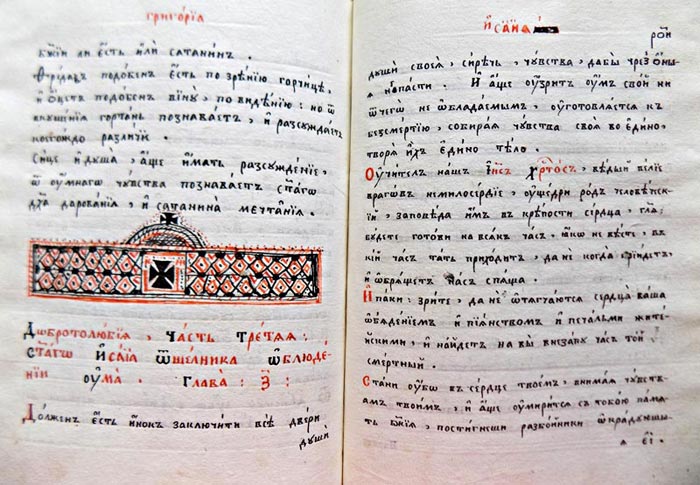 григо́рїѧ
бж҃їи ли є҆сть и҆лѝ сатанинъ
Ѻ҆ридъ подобенъ є҆сть по зрѣнїю горчицѣ,
и҆ ѻ҆цетъ подобенъ вїнꙋ, по видѣнїю: но ѿ
вкꙋшенїѧ гортань познаваетъ, и҆ разсꙋждаетъ
коегождо различїе.
Сице и҆ дꙋша, а҆ще и҆мать разсꙋжденїе,
ѿ оу҆мнагѡ чꙋвства познаваетъ ст҃агѡ
дх҃а дарованїѧ, и҆ сатанина мечтанїѧ.
Добротолюбїѧ, часть третаѧ:
ст҃агѡ и҆саїа ѿшелника ѡ҆ блюде-
нїи оу҆ма. глава: з҃:
Долженъ є҆сть и҆нокъ заключити всѣ двери
дꙋшѝ
и҆саїа
рѳ҃и
дꙋшѝ своеѧ, сирѣчь, чꙋвства, дабы чрез ѻ҆ны-
ѧ не пасти. И҆ а҆ще оу҆зритъ оу҆мъ свой ни
ѿ чегѡ не ѡ҆бладаемымъ, оу҆готовлѧетсѧ къ
безсмертїю, собираѧ чꙋвства своѧ во є҆дино,
творѧ и҆хъ є҆дино тѣло.
Оу҆чителъ нашъ І҆и҃съ Хрⷭ҇тосъ, вѣдый велїе
врагѡвъ немилосердїе, оу҆щедри родъ человѣчес-
кїй, заповѣда и҆мъ въ крѣпости сердца, гл҃ѧ:
бꙋдете готови на всѧкъ часъ, ꙗ҆кѡ не вѣсте, въ
кїй часъ тать приходитъ, да не когда прїидетъ
и҆ ѡ҆брѧщетъ насъ спѧща.
И҆ паки: зрите, да не ѿѧгчаютсѧ сердца ваша
ѡ҆бѧденїемъ и҆ пїѧнствомъ и҆ печальми жите-
йскими, и҆ найдетъ на вы внезапꙋ часъ той
смертный.
Стани оу҆бѡ въ сердце твоемъ, внимаѧ чꙋвств-
амъ твоимъ, и҆ а҆ще оу҆миритсѧ съ тобою памѧ-
ть бж҃їѧ, постигнеши разбойники ѡ҆крадꙋющы-
ѧ є҆ѝ.